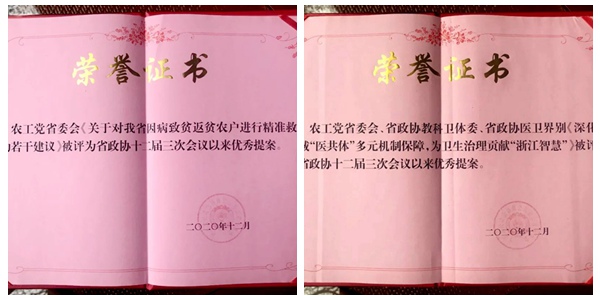 荣誉证书
农工党省委会《关于对我省因病致贫返贫农户进行精准救
若干建议》被评为省政协十二届三次会议以来优秀提案。
二〇二〇年十二月
荣誉证书
农工党省委会、省政协教科卫体委、省政协医卫界别《深化
“医共体”多元机制保障，为卫生治理贡献“浙江智慧”》被评
省政协十二届三次会议以来优秀提案。
二〇二〇年十二月